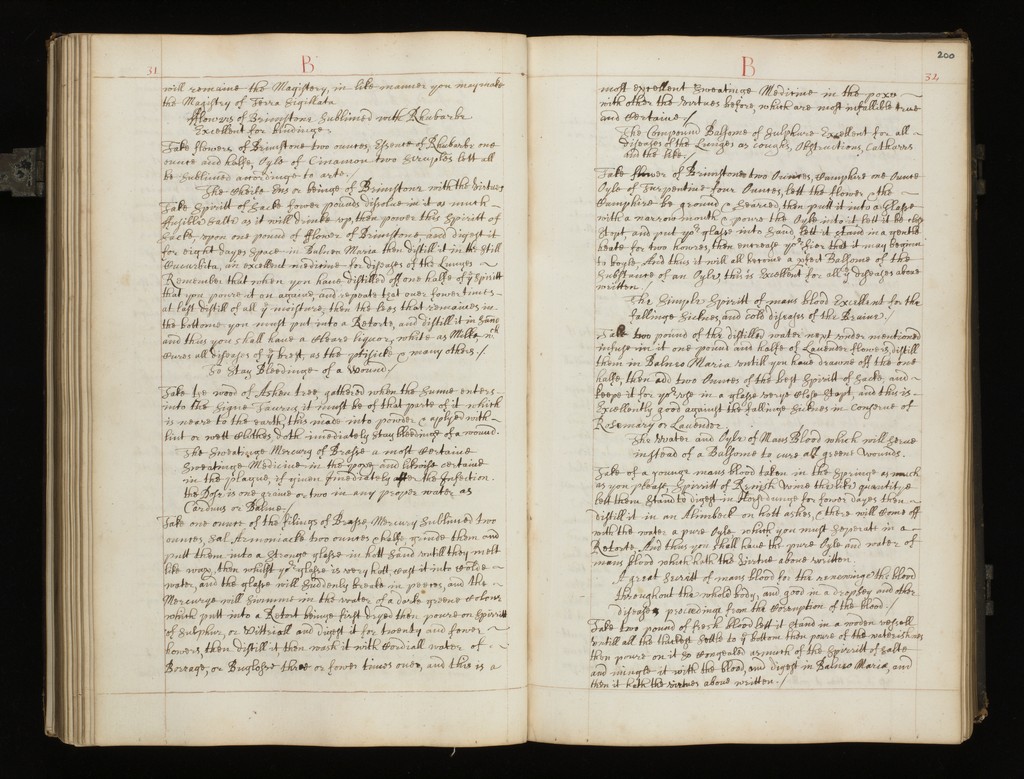 31
B
will remaine the Magistery, in like manner you may make
the Magistry of Terra Sigillata
fflowers of Brimstone Sublimed with Rhubarbe
Excellent for bindinge
Take flowers of Brimstone two ounces, Essence of Rhubarbe one
ounce and halfe, Oyle of Cinamon two Scruples lett all
be Sublimed accordinge to arte /
The Ens or beinge of Brimstone with the Virtues
Take Spiritt of Sacke fower pounds disolve in it as much
ffusible Salte as it will drinke up, then power this Spiritt of
Sacke, upon one pound of fflower of Brimstone, and digest it
for eight dayes space in Balneo Maria then distill it in the Still
Cucurbita, an excellent medicine for diseases of the Lunges
Remember that when you have distilled off one halfe of yᵉ Spiritt
that you poure it on againe, and repeate that over fower times
at last distill of all yᵉ moisture, then the lees that remaines in
the bottome you must put into a Retorte, and distill it in Sand
and thus you shall have a Cleare liquor, white as Milke, wᶜʰ
Cures all diseases of yᵉ brest, as the ptisicke & many others /
To Stay Bleedinge of a Wound /
Take the wood of Ashen tree, gathered when the Sunne enters
into the Signe Taurus, it must be of that parte of it which
is neare to the earth, this made into powder & aplyed with
lint or wett Clothes, doth imediately Stay bleedinge of a wound.
The Sweatinge Mercury of Brasse a most Certaine
Sweatinge Medicine in the poxe and likwise certaine
in the plague, if given imediately after the Infection.
the Dose is one graine or two in any proper water as
Carduus or Balme /
Take one ounce of the filings of Brasse, Mercury Sublimed two
ounces, Sal Armoniacke two ounces & halfe grinde them and
putt them into a Stronge glasse in hott Sand untill they melt
like waxe, then whilst yᵉ glasse is very hott, cast it into Colde
water, and the glasse will Suddenly breake in peeces, and the
Mercurye will Swimme in the water of a darke greene Colour
which putt into a Retort beinge first dryed then poure on Spiritt
of Sulphur, or Vittriall and digest it for twenty and fower
howers, then distill it then wash it with Cordiall water of
Borage, or Buglosse three or fower times over, and this is a
200
B
32
most excellent Sweatinge Medicine in the poxe
with other the Virtues before, which are most infallible true
and Certaine /
The Compound Balsome of Sulphure Excellent for all
diseases of the Lunges as coughs, Obstructions, Catharrs
and the like /
Take flower of Brimstone two Ounces, Camphire one Ounce
Oyle of Turpentine four Ounces, lett the flower & the
Camphire be ground & Searced, then putt it into a glasse
with a narrow mouth & poure the Oyle into it lett it be
Stopt, and put yᵉ glasse into Sand, lett it stand in a gentle
heate for two howres, then encrease yᵉ fier that it may beginne
to boyle, And thus it will all become a pfect Balsome of the
Substance of an Oyle, this is Excellent for all yᵉ diseases above
written /
The Simple Spiritt of mans blood Excellent for the
fallinge Sicknes, and cold diseases of the Braine /
Take two pound of the distilled water next under mentioned
infuse in it one pound and halfe of Lavender flowers, distill
them in Balneo Maria untill you have drawne off the one
halfe, then add two Ounces of the best Spiritt of Sacke, and
keepe it for yᵉ use in a glasse very Close Stopt, and this is
Excellently good against the fallinge Sicknes in conserve of
Rosemary or Lavender
The Water and Oyle of Mans Blood which will Serve
instead of a Balsome to cure all greene wounds.
Take of a younge mans blood taken in the Springe as much
as you please, Spirritt of Renish Wine the like quantitye
lett them Stand to digest in Horsdunge for fower dayes then
distill it in an Alimbeck on hott ashes, & there will come off
with the water a pure Oyle which you must Seperate in a
Retorte, And thus you shall have the pure Oyle and water of
mans blood which hath the Virtue above written.
A great Secritt of mans blood for the renewinge the blood
throughout the whole body, and good in a dropsey and other
diseases proceedinge from the Coruption of the blood /
Take two pound of fresh blood lett it stand in a woden vessell
untill all the thickest Settle to yᵉ bottom then poure of the
then poure on it so Congealed as much of the Spirritt of Salte
and mingle it with the blood, and digest in Balneo Maria, and
then it hath the virtues above written /